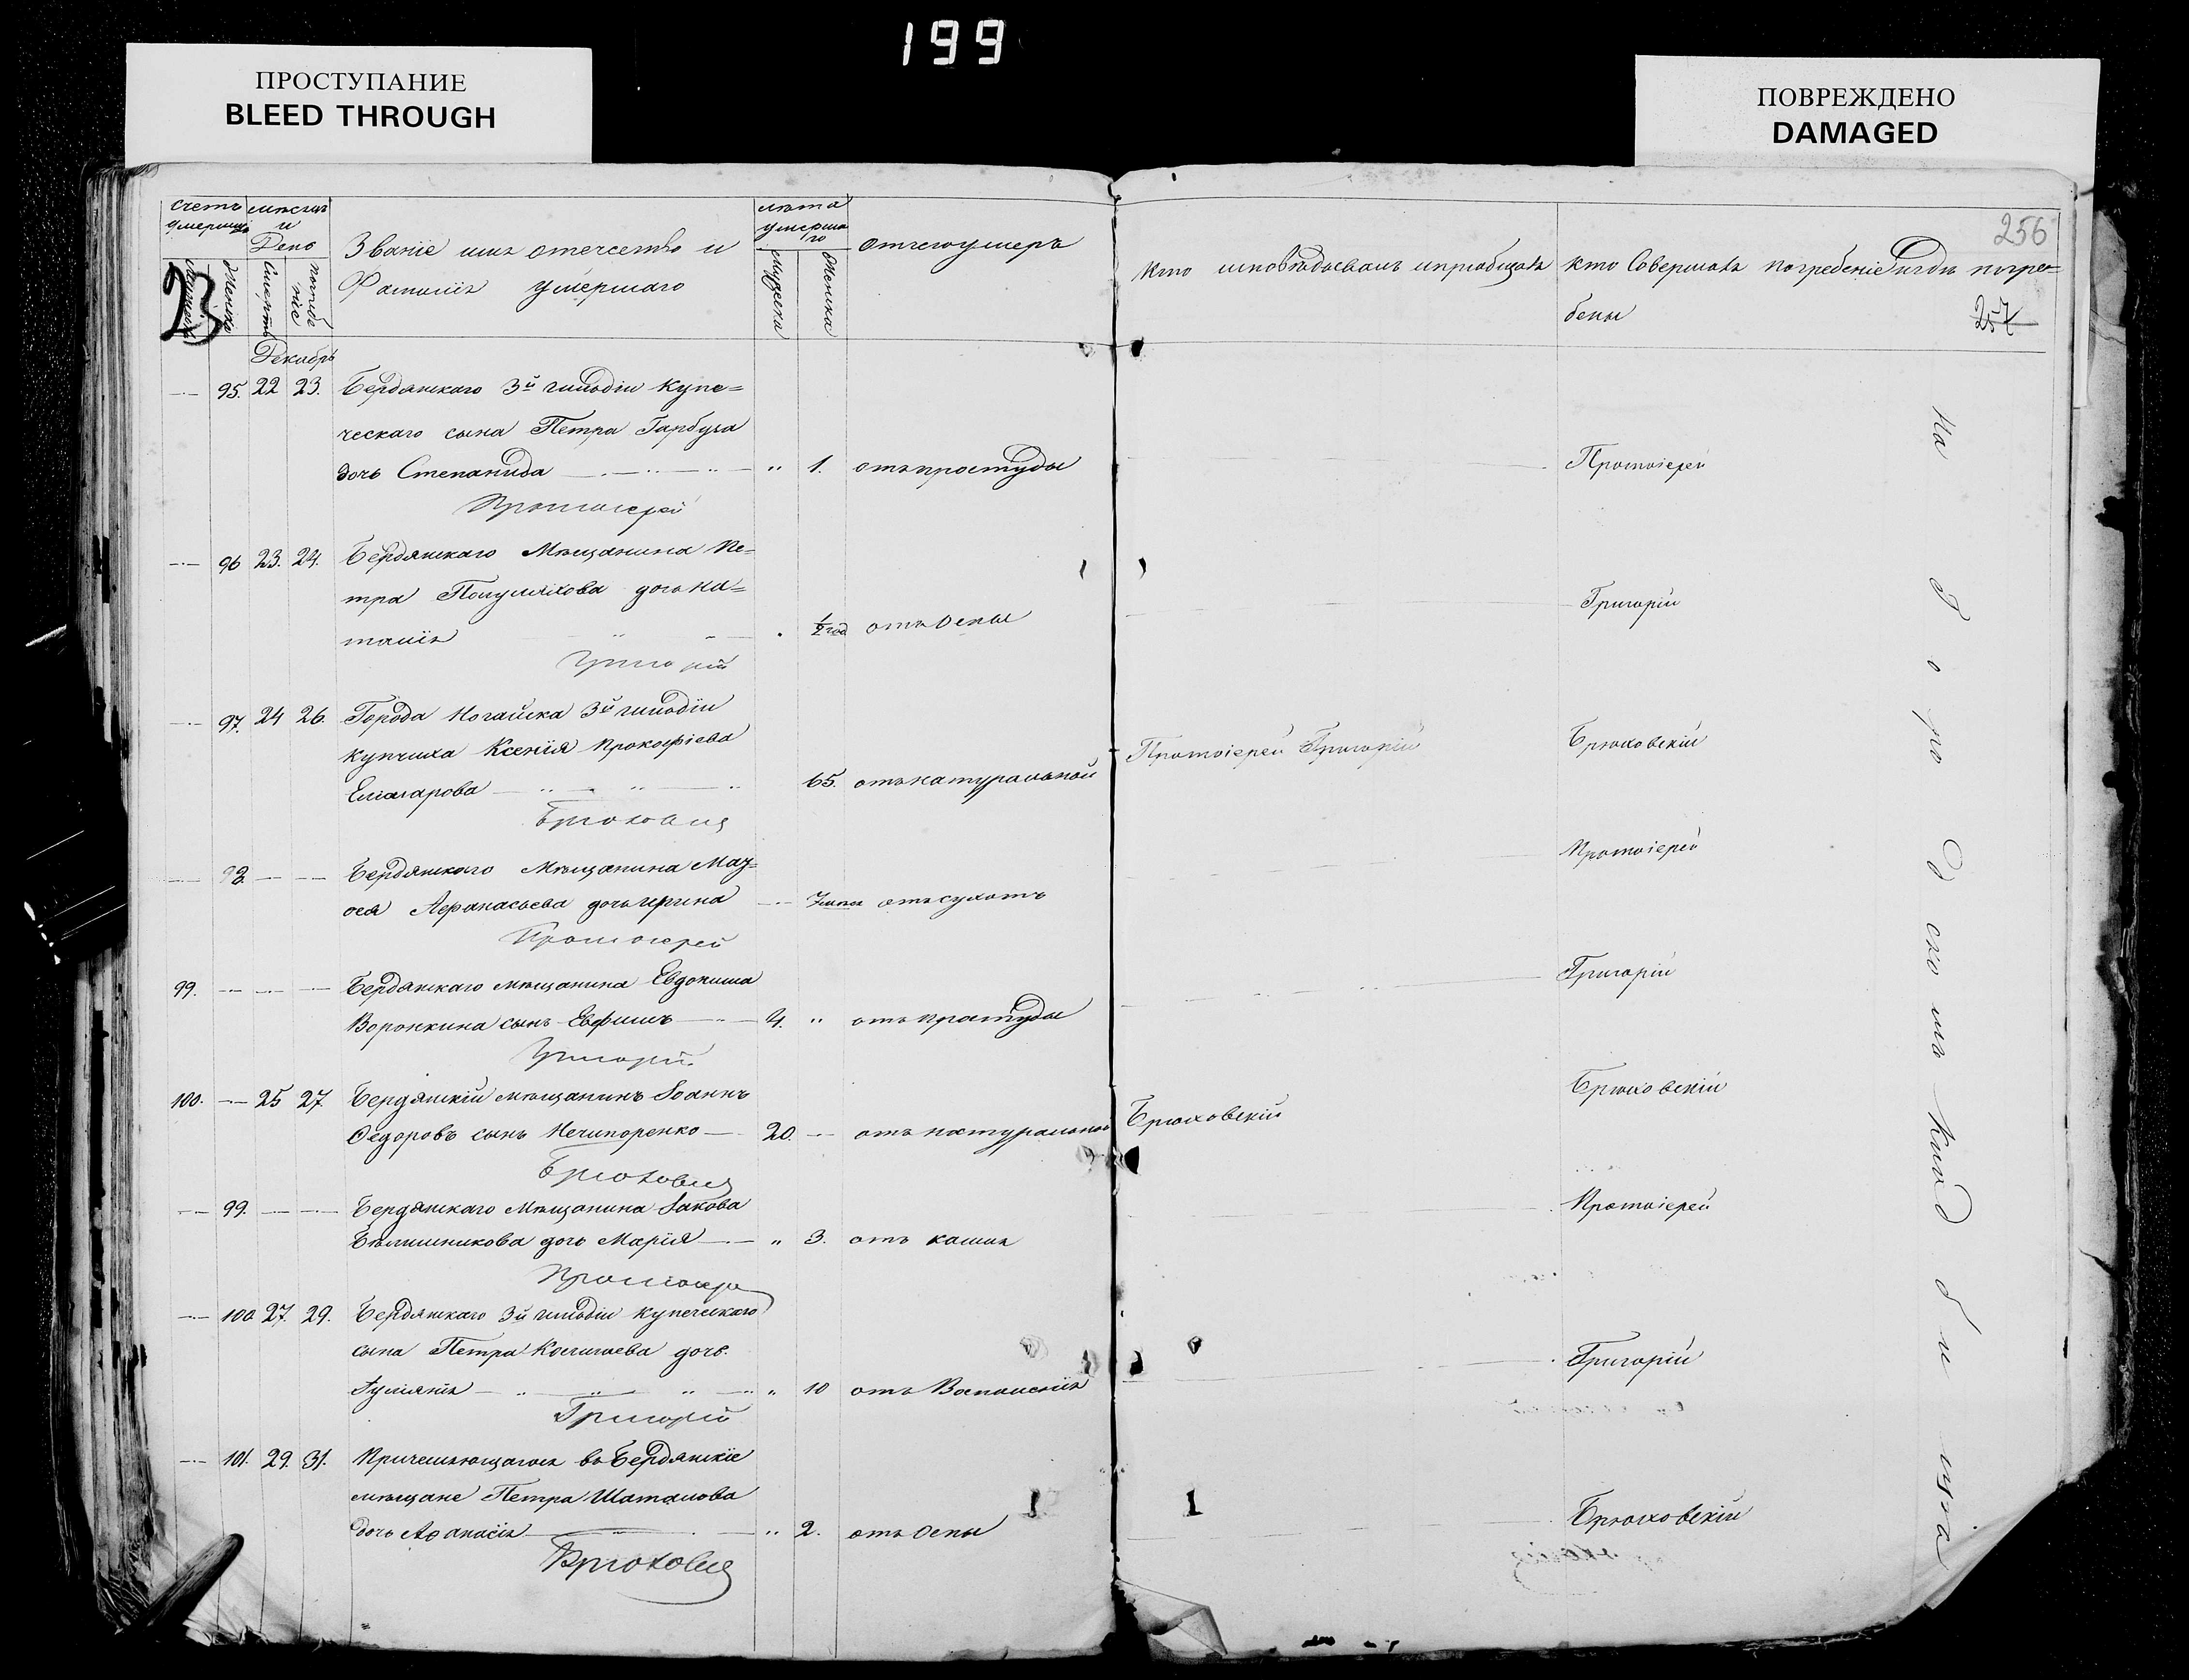 199
ПРОСТУПАНИЕ
BLEED THROUGH
ПОВРЕЖДЕНО
DAMAGED
256
257
23
счетъ умерших
мѣсяцъ и День
Званіе имя отечество и Фамилія умершаго
лѣта умершаго
отчего умеръ
Мужеска
Женска
Кто исповѣдывалъ и пріобщалъ
кто Совершалъ погребеніе и гдѣ погребены
Декабрь
95. 22 23. Бердянскаго 3й гильдіи купе=
ческаго сына Петра Гарбуза
дочь Степанида 1. отъ простуды
Протоіерей
Протоіерей
96 23. 24. Бердянскаго Мѣщанина Пе=
тра Полуляхова дочь На=
талія ½ год отъ Оспы
Григорій
Григорій
97. 24 26. Города Ногайска 3й гильдіи
купчиха Ксенія Прокофіева
65. отъ натуральной
Протоіерей Григорій
Брюховскій
98. Бердянскаго Мѣщанина
Афанасьева дочь Ирина отъ сухотъ
Протоіерей
Протоіерей
99. Бердянскаго мѣщанина Евдокима
Воронкина сынъ Евфимъ 4. отъ простуды
Григорій
Григорій
100. 25 27. Бердянскій мѣщанинъ Іоаннъ
Федоровъ сынъ Нечипоренко 20. отъ натуральной
Брюховскій
Брюховскій
99. Бердянскаго Мѣщанина Іакова
дочь Марія 3. отъ кашля
Протоіерей
Протоіерей
100 27. 29. Бердянскаго 3й гильдіи купеческаго
сына Петра дочь
Іуліанія 10 отъ Воспаленія
Григорій
Григорій
101. 29. 31. Причисляющагося въ Бердянскіе
мѣщане Петра Шаталова
дочь Афанасія 2. отъ Оспы
Брюховскій
На Городскомъ Кладбищѣ